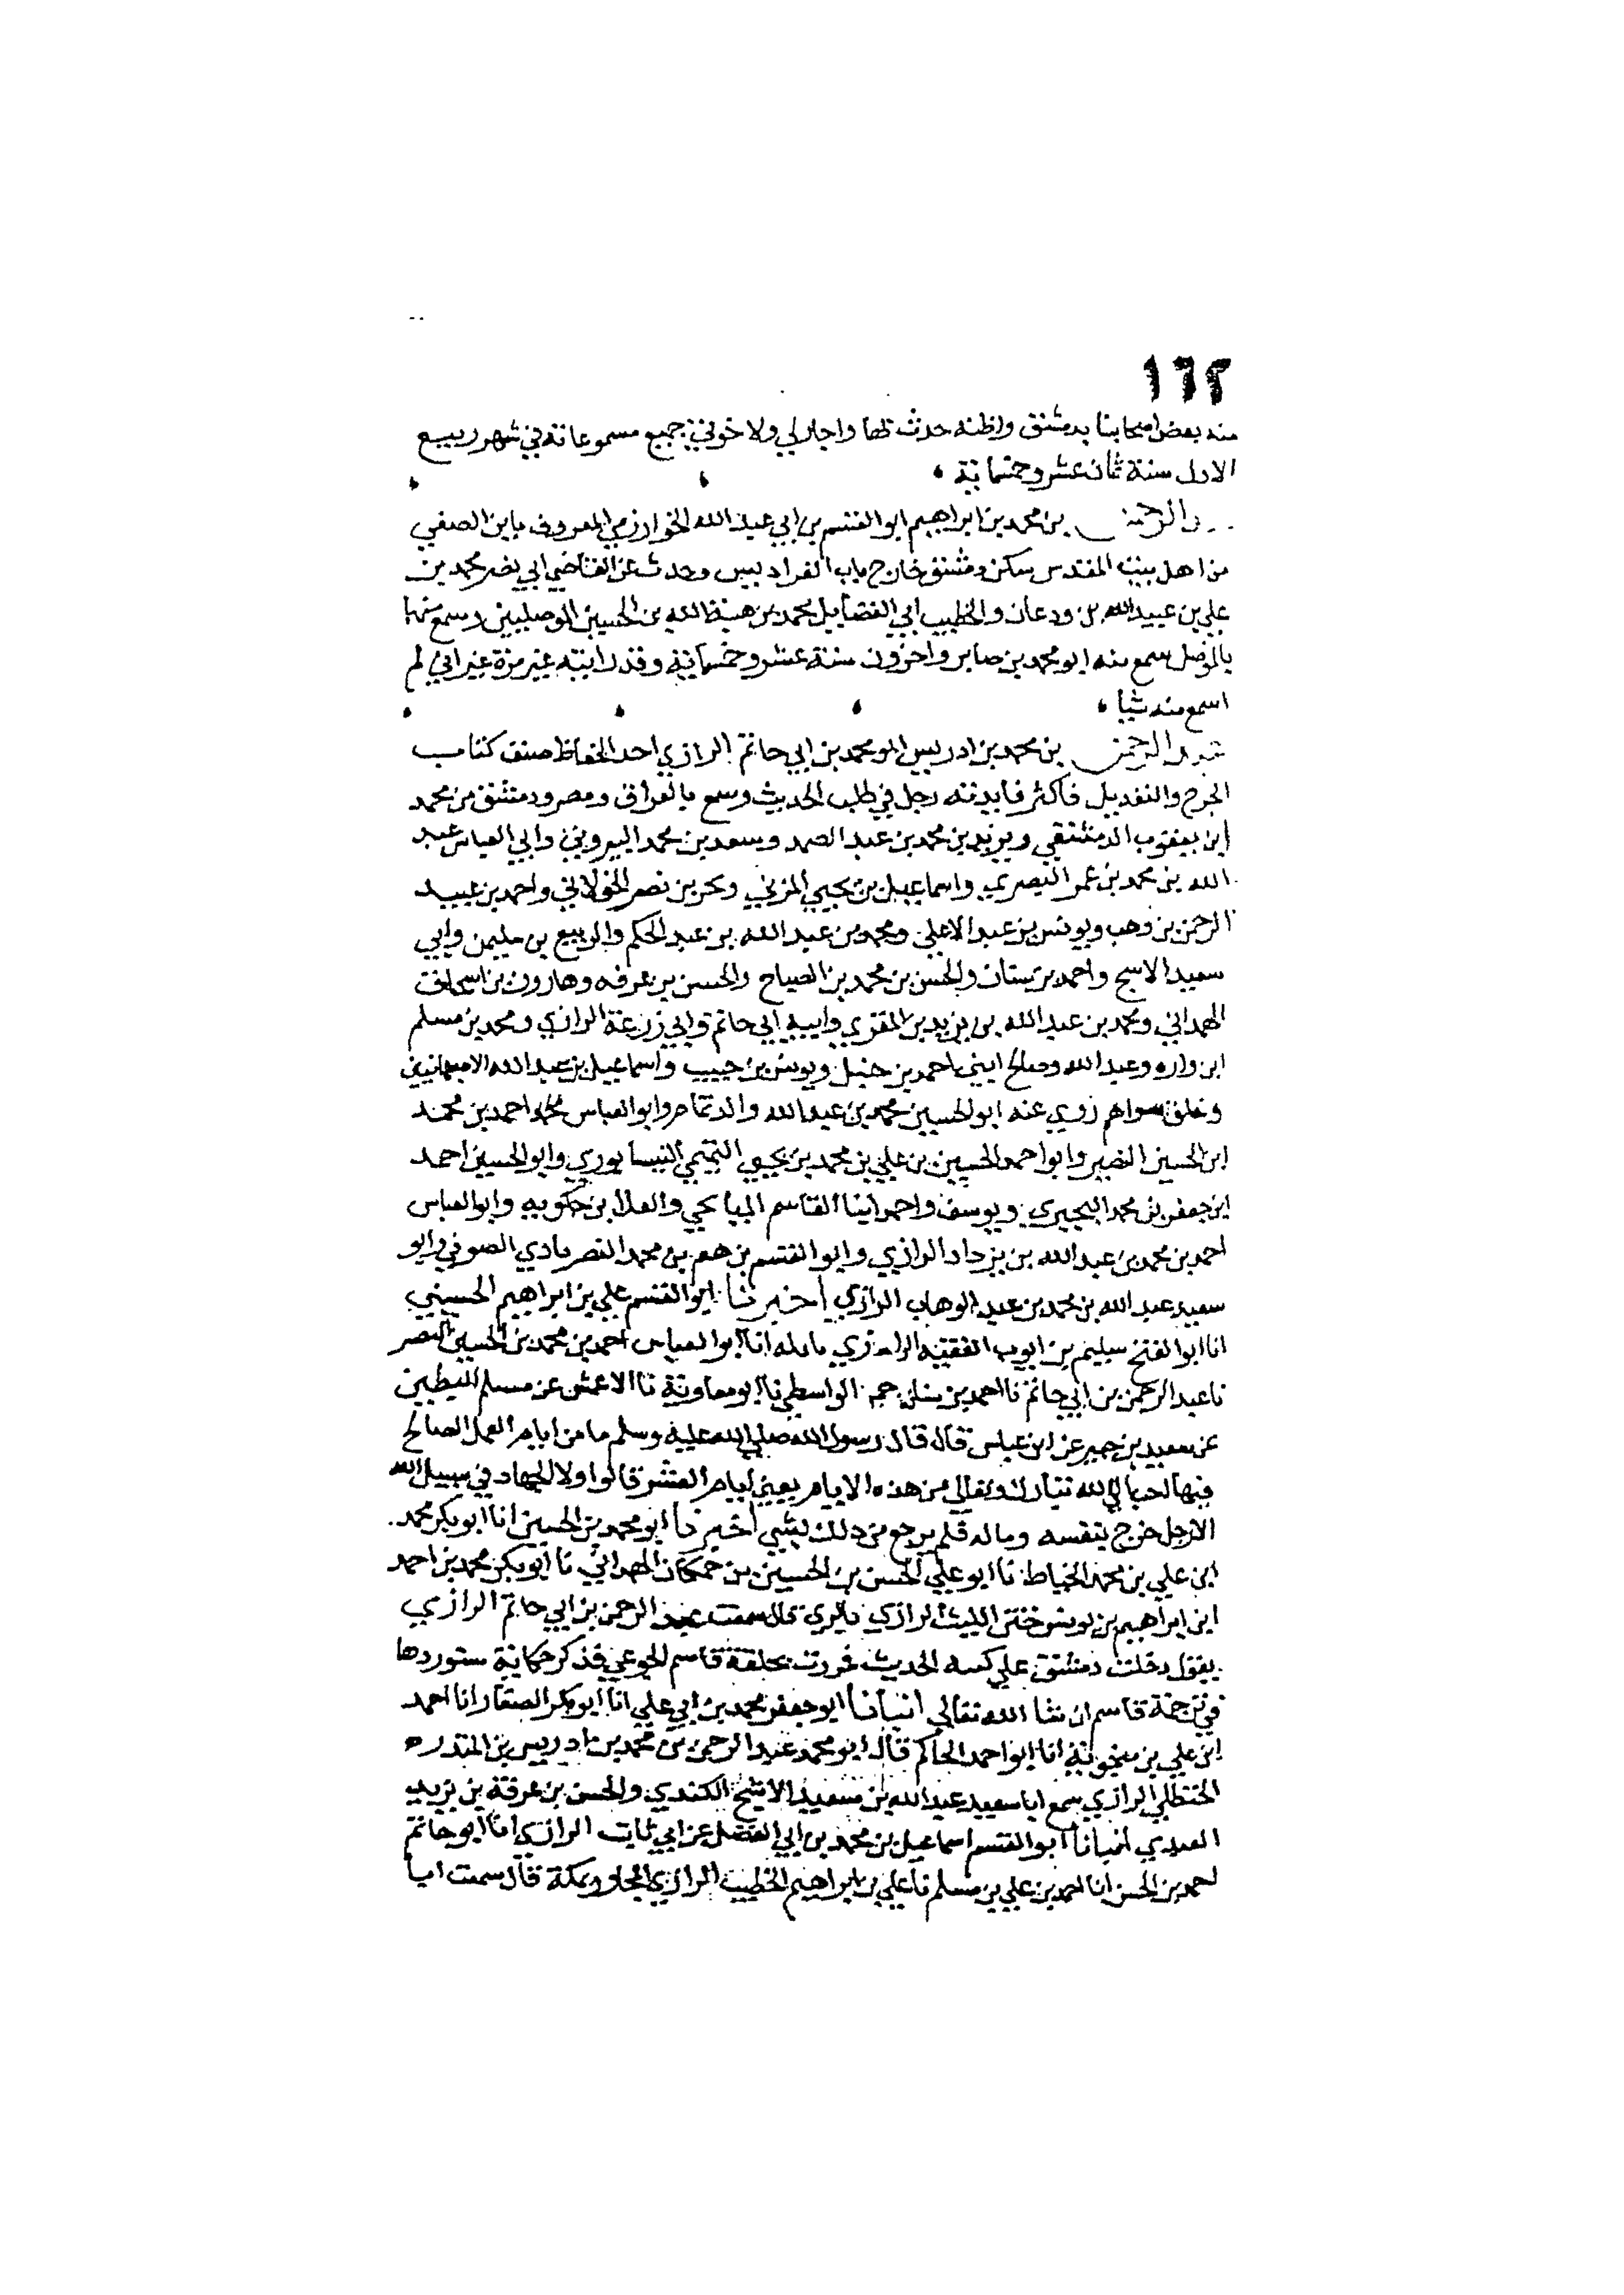 ١٦٢
منه بعض اصحابنا بدمشق واظنه حدث بها واجاز لي ولاخوتي جميع مسموعاته في شهر ربيع
الاول سنة ثمان عشر وخمسمائة
عبد الرحمن بن محمد بن ابراهيم ابو القسم بن ابي عبد الله الخوارزمي المعروف بابن الصفي
من اهل بيت المقدس سكن دمشق خارج باب الفراديس وحدث عن القاضي ابي نصر محمد بن
علي بن عبيد الله بن ودعان والخطيب ابي الفضايل محمد بن هبة الله بن الحسين الموصليين وسمع منهما
بالموصل سمع منه ابو محمد بن صابر واخرون سنة عشر وخمسماية وقد رايته غير مرة غير اني لم
اسمع منه شيا
عبد الرحمن بن محمد بن ادريس ابو محمد بن ابي حاتم الرازي احد الحفاظ صنف كتاب
الجرح والتعديل فاكثر فايدته رحل في طلب الحديث وسمع بالعراق ومصر ودمشق من محمد
ابن يعقوب الدمشقي ويزيد بن محمد بن عبد الصمد وسعد بن محمد البيروتي وابي العباس عبد
الله بن محمد بن عمر البصري واسماعيل بن يحيي المزني وبحر بن نصر الخولاني واحمد بن عبيد
الرحمن بن وهب ويونس بن عبد الاعلي ومحمد بن عبد الله بن عبد الحكم والربيع بن سليمن وابي
سعيد الاشج واحمد بن سنان والحسن بن محمد بن الصباح والحسن بن عرفه وهارون بن اسحاق
الهمداني ومحمد بن عبد الله بن يزيد بن المقري وابيه ابي حاتم وابي زرعة الرازي ومحمد بن مسلم
ابن واره وعبد الله وصالح ابني احمد بن حنبل ويونس بن حبيب واسماعيل بن عبد الله الاصبهانيين
وخلق سواهم روي عنه ابو الحسين محمد بن عبد الله والد تمام وابو العباس احمد بن محمد
ابن الحسين البصير وابو احمد الحسين بن علي بن محمد بن يحيي التميمي النيسابوري وابو الحسين احمد
ابن جعفر بن محمد البحيري ويوسف واحمد ابنا القاسم الميانجي والعلا بن حكويه وابو العباس
احمد بن محمد بن عبد الله بن يزداد الرازي وابو القسم بن هيم بن محمد النصربادي الصوفي وابو
سعيد عبد الله بن محمد بن عبد الوهاب الرازي اخبرنا ابو القسم علي بن ابراهيم الحسيني
انا ابو الفتح سليم بن ايوب الفقيه الرازي انا ابو العباس احمد بن محمد بن الحسين البصير
نا عبد الرحمن بن ابي حاتم نا احمد بن سنان الواسطي نا ابو معاوية نا الاعمش عن مسلم البطين
عن سعيد بن جبير عن ابن عباس قال قال رسول الله صلي الله عليه وسلم ما من ايام العمل الصالح
فيها احب الي الله تبارك وتعالي من هذه الايام يعني ايام العشر قالوا ولا الجهاد في سبيل الله
الا رجل خرج بنفسه وماله فلم يرجع من ذلك بشي اخبرنا ابو محمد بن الحسين انا ابو بكر محمد
ابن علي بن محمد الخياط نا ابو علي الحسن بن الحسين بن حمكان الهمداني نا ابو بكر محمد بن احمد
ابن ابراهيم بن يونس ختن الليث الرازي بالري قال سمعت عبد الرحمن بن ابي حاتم الرازي
يقول دخلت دمشق علي كتبه الحديث فمررت بحلقة قاسم الجوعي فذكر حكاية ستوردها
في ترجمة قاسم ان شا الله تعالي انبانا ابو جعفر محمد بن ابي علي انا ابو بكر الصفار انا احمد
ابن علي بن منجويه انا ابو احمد الحاكم قال ابو محمد عبد الرحمن بن محمد بن ادريس بن المنذر
الحنظلي الرازي سمع ابا سعيد عبد الله بن سعيد الاشج الكندي والحسن بن عرفة بن يزيد
العبدي انبانا ابو القسم اسماعيل بن محمد بن ابي الفضل عن ابي ثابت الرازي انا ابو حاتم
احمد بن الحسن انا احمد بن علي بن مسلم نا علي بن ابراهيم الخطيب الرازي المجاور بمكة قال سمعت ابا